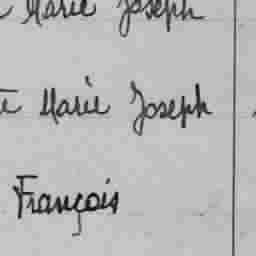 Marie Joseph
Marie Joseph
François